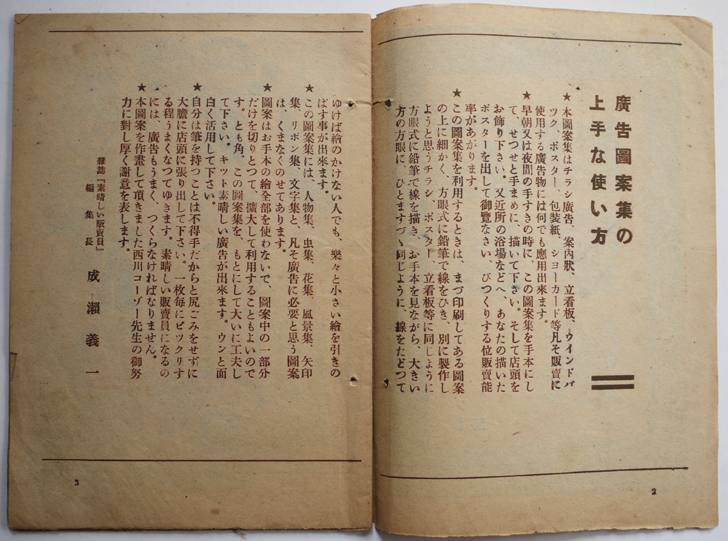 廣告圖案集の
上手な使い方
★本圖案集はチラシ廣告、案内狀、立看板、ウインドバ
ツク、ポスター、包裝紙、ショーカード等凡そ販賣に
使用する廣告物には何でも應用出來ます。
★早朝又は夜間の手すきの時に、この圖案集を手本にし
て、せつせと手まめに、描いて下さい。そして店頭を
お飾り下さい。又近所の浴場などへ、あなたの描いた
ポスターを出して御覽なさい、びつくりする位販賣能
率があがります。
★この圖案集を利用するときは、まづ印刷してある圖案
の上に細かく、方眼式に鉛筆で線をひき、別に製作し
ようと思うチラシ、ポスター、立看板等に同しように
方眼式に鉛筆で線を描き、お手本を見ながら、大きい
方の方眼に、ひとますづゝ同じように、線をたどつて
2
ゆけば繪のかけない人でも、樂々と小さい繪を引きの
ばす事が出來ます。
★この圖案集には、人物集、虫集、花集、風景集、矢印
集、リボン集、文字集と、凡そ廣告に必要と思う圖案
は、くまなくのせてあります。
★圖案はお手本の繪全部を使わないで、圖案中の一部分
だけを切りとつて、擴大して利用することもよいので
す。とも角、この圖案集を、もとにして大いに工夫し
て下さい。キツト素晴しい廣告が出來ます。ウンと面
白く活用して下さい。
★自分は筆を持つことは不得手だからと尻ごみをせずに
大膽に店頭に張り出して下さい、一枚每にビツクリす
る程うまくなつてゆきます。素晴しい販賣員になるの
には、廣告もうまく、つくらなければなりません。
★本圖案を作畫して頂きました西川コーゾー先生の御努
力に對し厚く謝意を表します。
雜誌『素晴しい販賣員』
編集長
成瀬義一
3